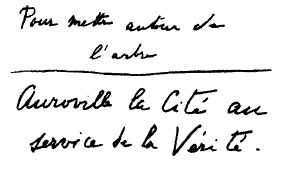 Pour mettre autour de
l'arbre
Auroville la Cité au
service de la Vérité.